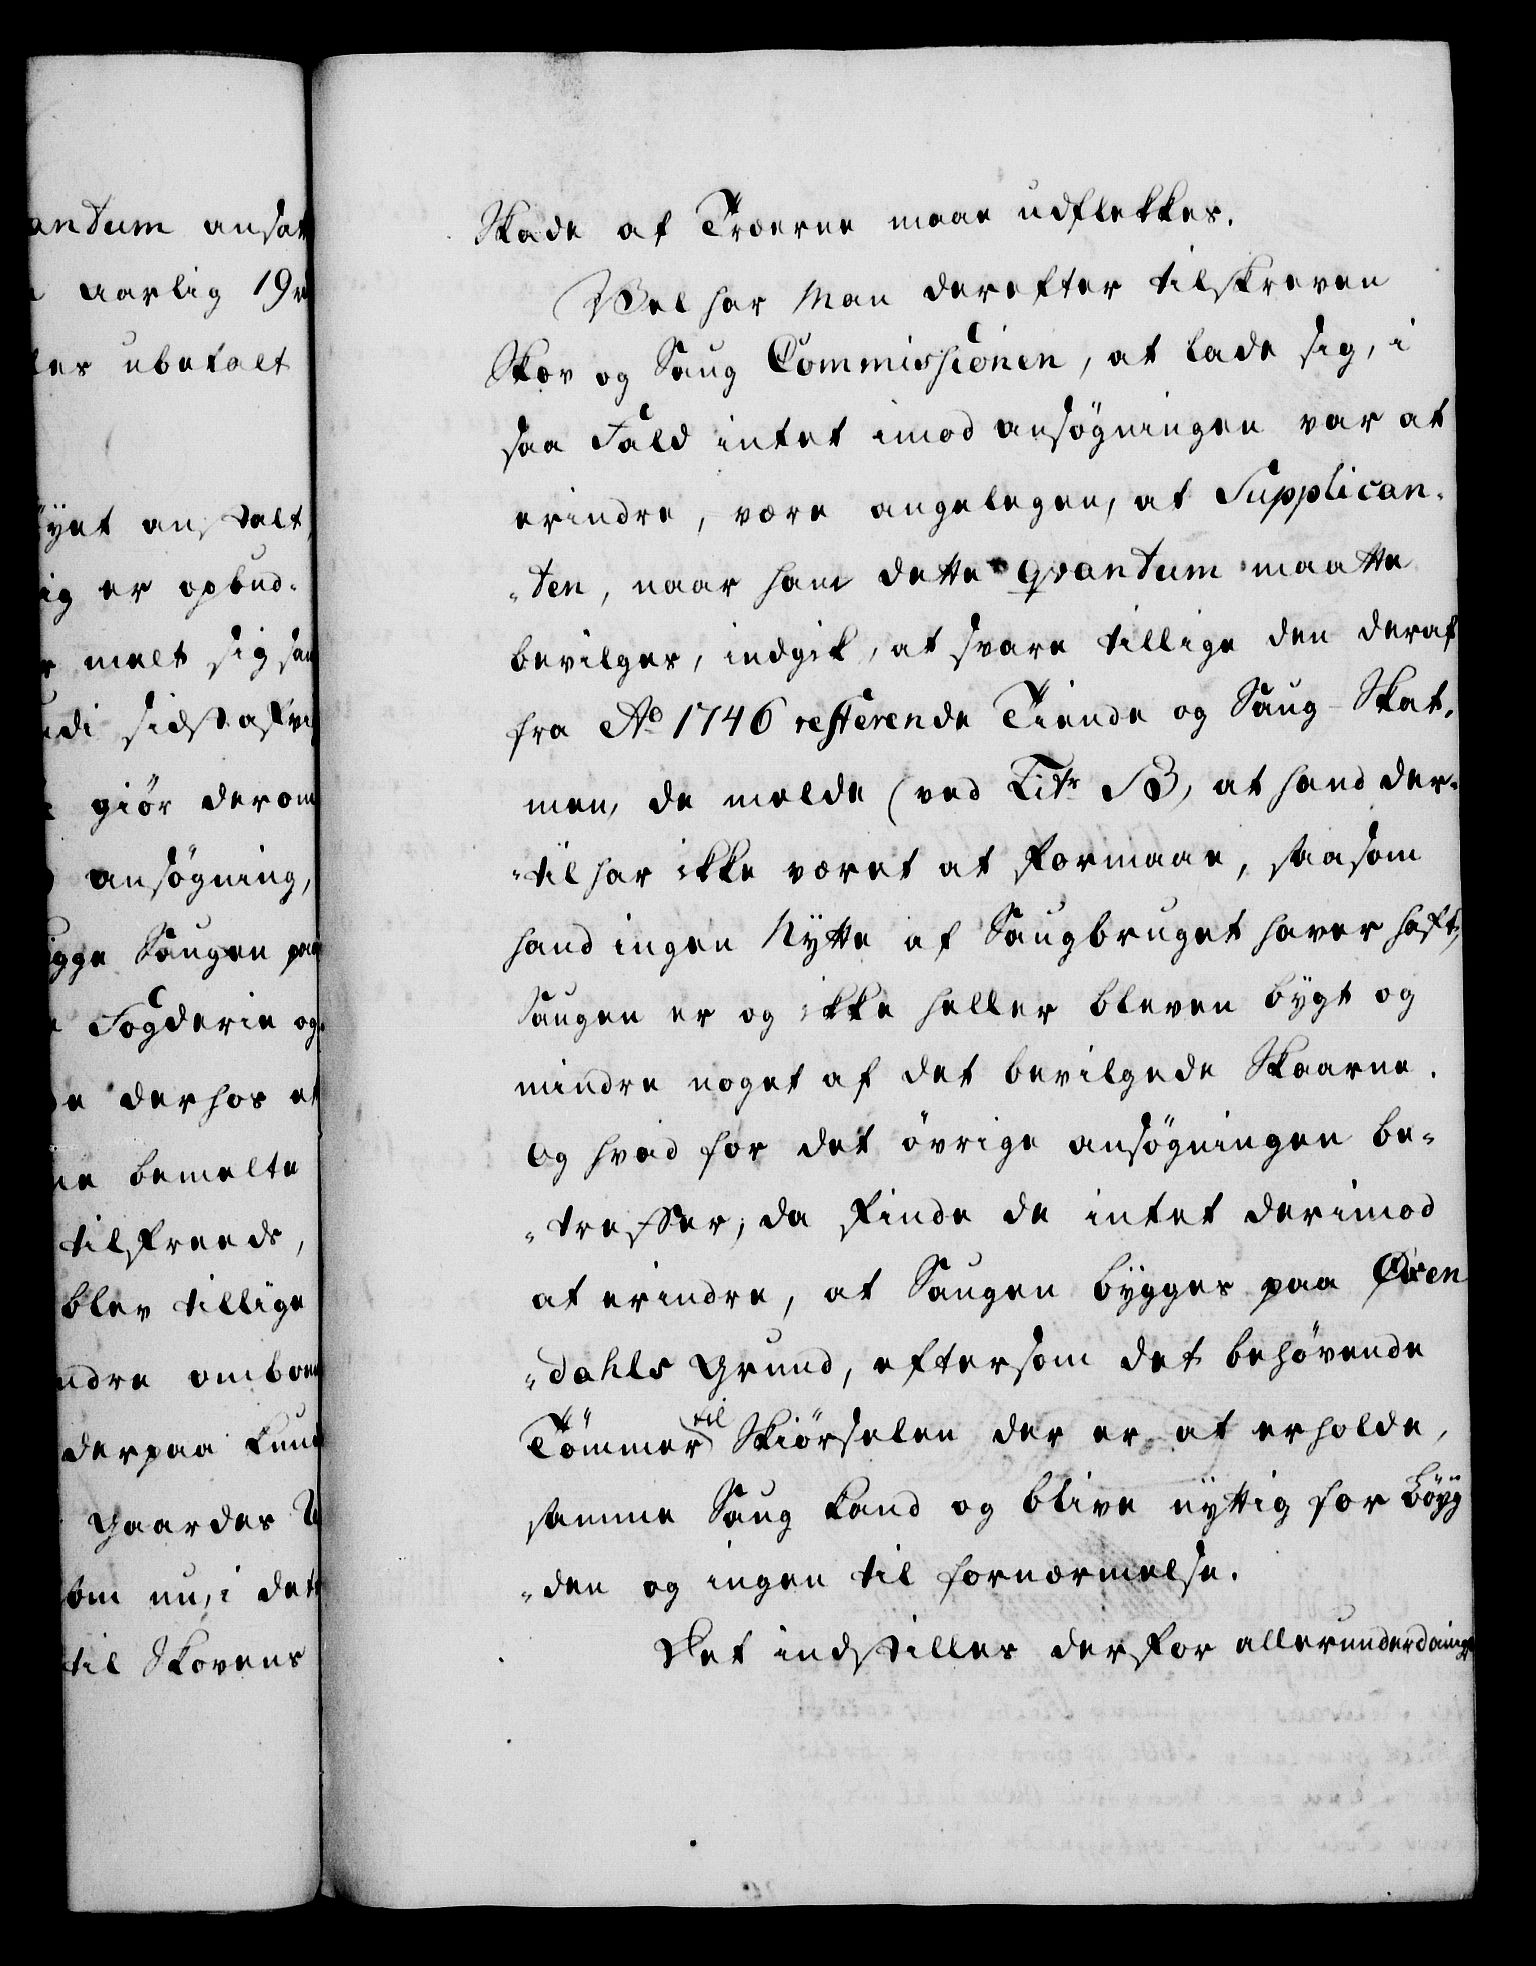 antum ansat
aarlig 19
les ubetalt
öyet anstalt,
ig er opbud-
melt sig
sidst
giør derom
ansøgning,
ygge Saugen paa
Fogderie og
derhos et
bemelte
tilfreeds,
blev tillige
ndre omboen
derpaa kund
Gaardes
om nu, i dett
til Skovens
Skade af Træerne maae udflekkes.
Vel har Man derefter tilskreven
Skov og Saug Commissionen, at lade sig, i
saa Fald intet imod ansøgningen var at
erindre, være angelegen, at Supplican-
„ten, naar ham dette qvantum maatte
bevilges, indgik, at svare tillige den deraf
fra Ao 1746 resterende Tiende og Saug-Skat,
men, de melde (ved Litr B, at hand der-
„til har ikke været at formaae, saasom
hand ingen Nytte af Saugbruget haver haft,
Saugen er og ikke heller bleven bygt og
mindre noget af det bevilgede Skaarne.
Og hvad for det øvrige ansøgningen be-
„treffer, da finde de intet derimod
at erindre, at Saugen bygges paa Øxen
„dahls Grund, eftersom det behøvende
Tømmer til Skiørselen der er at erholde,
samme Saug kand og blive nyttig for Böyg
„den og ingen til fornærmelse.
Det indstilles derfor allerunderdanigst